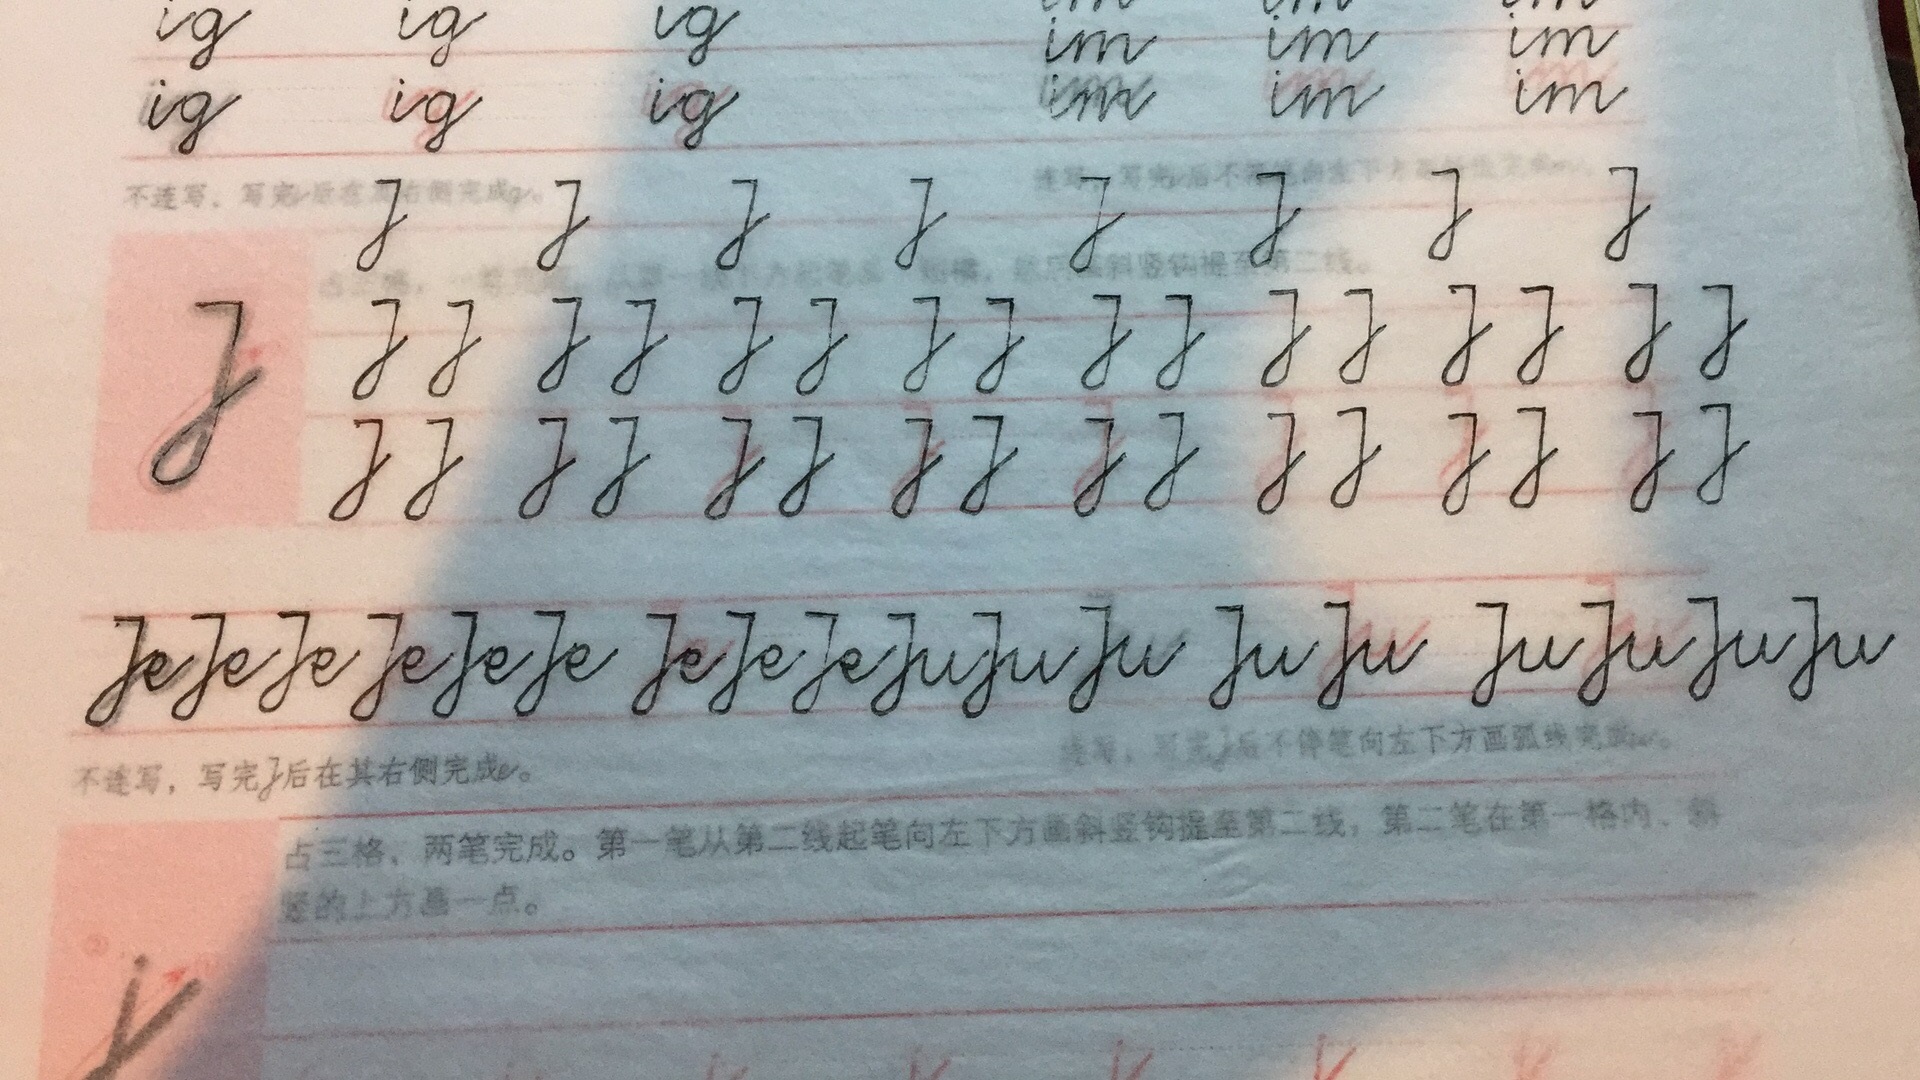 ig ig ig im im im
ig ig ig im im im
不连写，写完i后在其右侧完成g。 连写，写完i后不停笔向左下方
J J J J J J J J
占三格， 斜竖钩提至第二线。
J
J J J J J J J J J J J J J J J J
J J J J J J J J J J J J J J J J
Je Je Je Je Je Je Je Je Je Ju Ju Ju Ju Ju Ju Ju Ju Ju
不连写，写完J后在其右侧完成e。 连写，写完J后不停笔向左下方画弧线完成u。
占三格，两笔完成。第一笔从第二线起笔向左下方画斜竖钩提至第二线，第二笔在第一格内、斜
竖的上方画一点。
② j